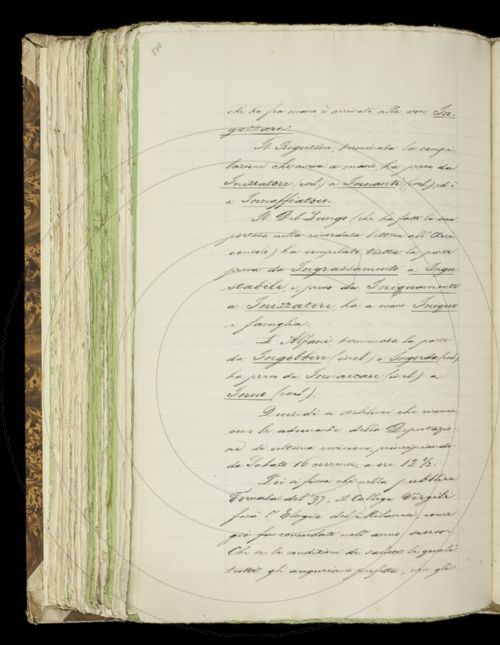 che ha fra mano è arrivato alla voce In-
gozzare.
Il Rigutini, terminata la compi-
lazione che aveva a mano, ha preso da
Inizzatore (incl.) a Innanti (escl.) ed è
a Innaffiatoio.
Il Del Lungo (che ha fatto la sua
nella lettera all' Arci-
consolo) ha compilato tutta la parte
presa da Ingrassamento a Ingu-
stabile, e preso da Iniquamente
a Inizzatore, ha a mano Iniquo
e famiglia.
L' Alfani, terminata la parte
da Ingobbire (incl.) a Ingordo (escl.)
ha preso da Innarcare (incl.) a
Inno (escl.).
Quindi si stabilisce che
le adunanze della Deputazio-
ne di ultima revisione, principiando
da Sabato 16 corrente, a ore 12 ½.
Poi si fissa che nella pubblica
Tornata del '97, il Collega Virgili
farà l' Elogio del Milanesi, come
già fu concordato nell' anno scorso.
Che se le condizioni di salute, le quali
tutti gli auguriamo perfette, non gli